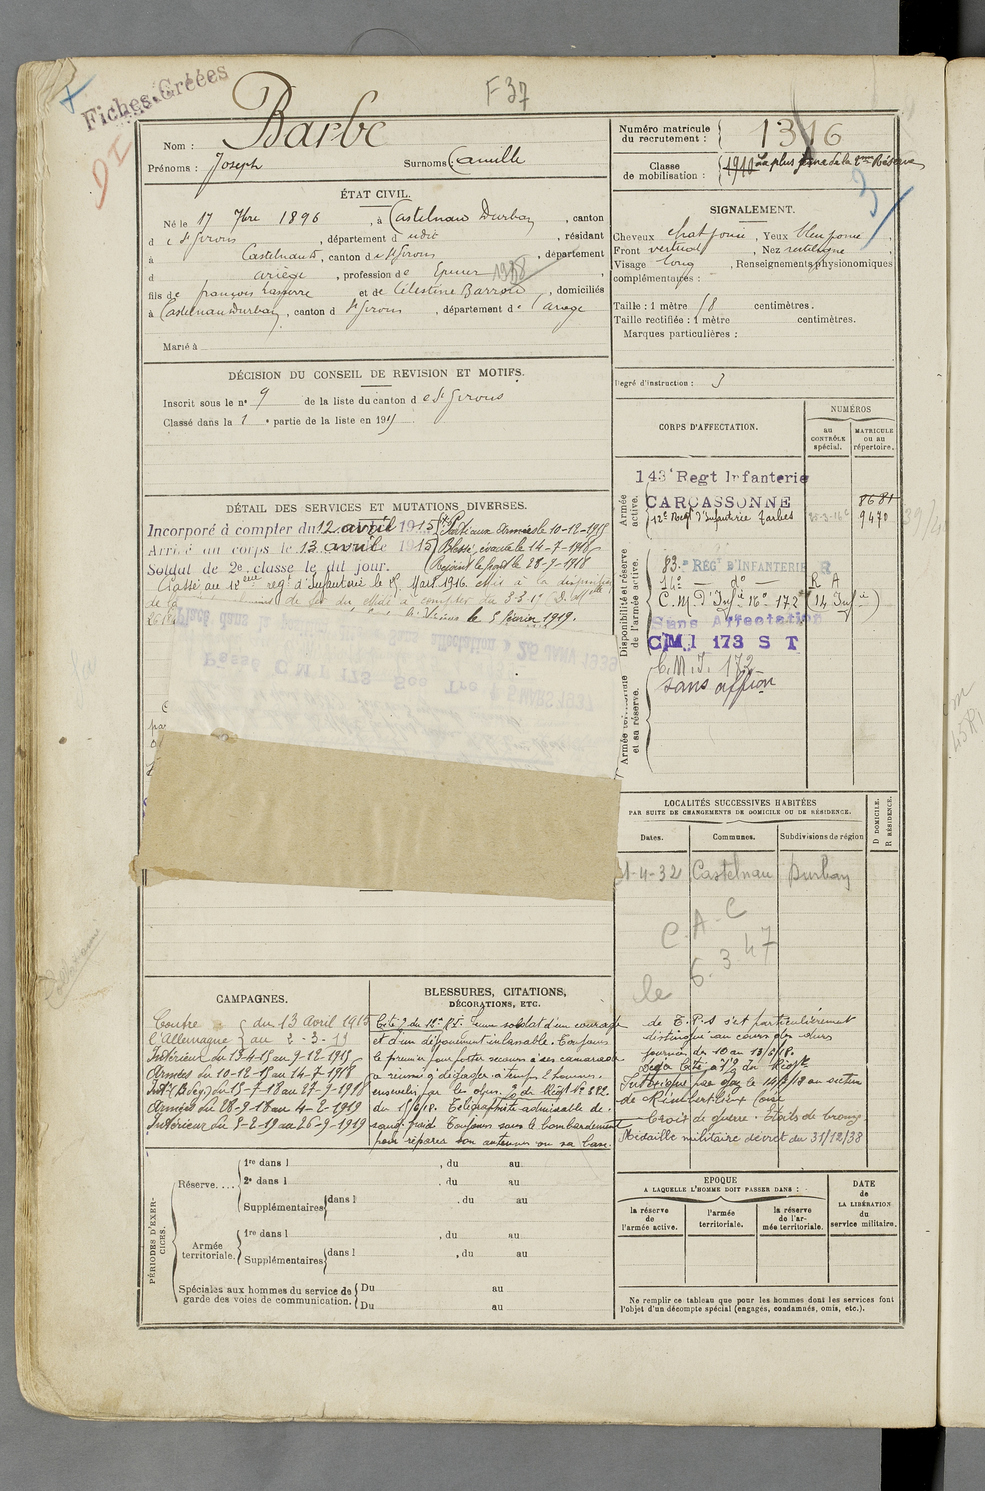 Fiches Créées
F 37
Nom : Barbe
Prénoms : Joseph Surnoms Camille
Numéro matricule du recrutement : 1316
Classe de mobilisation : 1910 La plus jeune de la 2eme Réserve
3
ÉTAT CIVIL.
Né le 17 7bre 1896, à Castelnau Durban, canton
d e St Girons, département d , résidant
à Castelnau d, canton de St Girons, département
d ariège, profession de 1918
fils de françois Lasserre et de Célestine Barrou, domiciliés
à Castelnau Durban, canton d St Girons, département de l'ariège
Marié à
SIGNALEMENT.
Cheveux , Yeux
Front vertical, Nez rectiligne
Visage long, Renseignements physionomiques
complémentaires :
Taille : 1 mètre 68 centimètres.
Taille rectifiée : 1 mètre centimètres.
Marques particulières :
DÉCISION DU CONSEIL DE REVISION ET MOTIFS.
Inscrit sous le no 9 de la liste du canton d e St Girons
Classé dans la 1e partie de la liste en 1915
Degré d'instruction : 3
CORPS D'AFFECTATION.
NUMÉROS
au CONTRÔLE spécial.
MATRICULE ou au répertoire.
Armée active.
143e Regt Infanterie
CARCASSONNE 8681
12e Regt d'Infanterie Tarbes 9470
Disponibilité et réserve de l'armée active.
83e RÉGt D'INFANTERIE R
14e — do — R A
C.M. D'Infie 16e 172e (14 Infie)
Sans Affectation
CMI 173 S T
Armée territoriale et sa réserve.
C.M.I. 172
sans affon
DÉTAIL DES SERVICES ET MUTATIONS DIVERSES.
Incorporé à compter du 12 avril 1915
Arrivé au corps le 13 avril 1915
Soldat de 2e classe le dit jour.
Parti aux Armées le 10-12-1915
Blessé, évacué le 14-7-1918
Rejoint le front le 28-9-1918
Passé au 12eme regt d'Infanterie le Mars 1916. mis à la disposition
de la
le 5 février 1919.
Placé dans la sans affectation 25 JANV 1939
Passé C M I 173 Son Tre 5 MARS 1937
LOCALITÉS SUCCESSIVES HABITÉES
PAR SUITE DE CHANGEMENTS DE DOMICILE OU DE RÉSIDENCE.
Dates. Communes. Subdivisions de région
D DOMICILE. R RÉSIDENCE.
1-4-32 Castelnau Durban
C.A.C
le 6.3.47
CAMPAGNES.
Contre l'Allemagne du 13 Avril 1915 au 2-3-19
Intérieur du 13-4-15 au 9-12-1915
Armées du 10-12-15 au 14-7-1918
Intr (Bles) du 15-7-18 au 27-9-1918
Armées du 28-9-18 au 4-2-1919
Intérieur du 5-2-19 au 26-9-1919
BLESSURES, CITATIONS,
DÉCORATIONS, ETC.
Cité 2 du 12e R.I. Jeune soldat d'un courage
et d'un dévouement inlassable. Toujours
le premier pour porter secours à ses camarades
a réussi à dégager à temps 2 hommes
ensevelis par les obus. O de Régt No 582
du 1/6/18. Télégraphiste admirable de
sang froid. Toujours sous le bombardement
pour réparer son antenne ou sa base.
de T.P.S s'est particulièrement
distingué au cours des dures
journées du 10 au 13/6/18.
Déjà Cité à l'O du Régt
Intoxiqué par gaz le 14/7/18 au secteur
de
Croix de guerre. Etoile de bronze
Médaille militaire décret du 31/12/38
PÉRIODES D'EXERCICES.
Réserve.... 1re dans l , du au
2e dans l , du au
Supplémentaires dans l , du au
Armée territoriale. 1re dans l , du au
Supplémentaires dans l , du au
Spéciales aux hommes du service de garde des voies de communication. Du au
Du au
EPOQUE
A LAQUELLE L'HOMME DOIT PASSER DANS :
la réserve de l'armée active.
l'armée territoriale.
la réserve de l'armée territoriale.
DATE de LA LIBÉRATION du service militaire.
Ne remplir ce tableau que pour les hommes dont les services font
l'objet d'un décompte spécial (engagés, condamnés, omis, etc.).